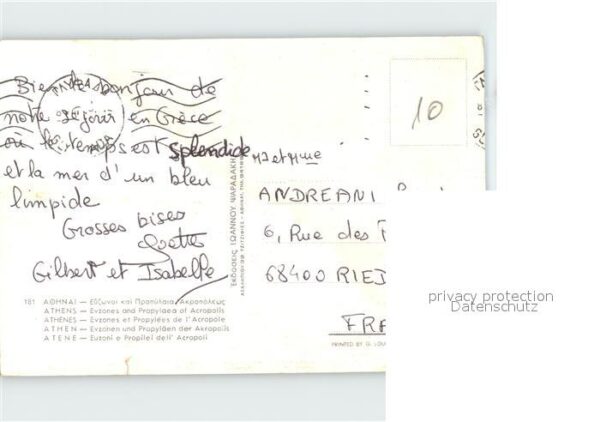 Bien le bonjour de
notre séjour en Grèce
où le temps est splendide
et la mer d'un bleu
limpide
Grosses bises
Gilbert et Isabelle
181 ΑΘΗΝΑΙ — Εὔζωνοι καὶ Προπύλαια Ἀκροπόλεως
ATHENS — Evzones and Propylaea of Acropolis
ATHÈNES — Evzones et Propylées de l'Acropole
ATHEN — Evzonen und Propyläen der Akropolis
ATENE — Euzoni e Propilei dell' Acropoli
ΕΚΔΟΣΕΙΣ ΙΩΑΝΝΟΥ ΨΑΡΑΔΑΚΗ
10
Mr et Mme
ANDREANI
6, Rue des
68400 RIED
FRA
PRINTED BY G. LOU
privacy protection
Datenschutz